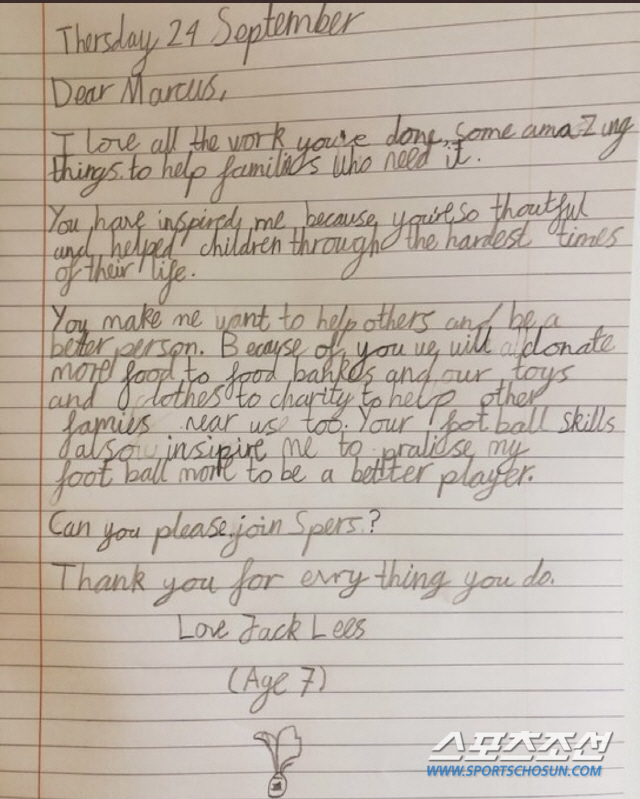 Thersday 24 September
Dear Marcus,
I love all the work you've done, some amazing
things to help families who need it.
You have inspired me because you're so thoutful
and helped children through the hardest times
of their life.
You make me want to help others and be a
better person. Because of you we will donate
more food to food bankes and our toys
and clothes to charity to help other
famies near us too. Your foot ball skills
also insipire me to pratise my
foot ball more to be a better player.
Can you please join Spers?
Thank you for evry thing you do.
Love Jack Lees
(Age 7)
스포츠조선
WWW.SPORTSCHOSUN.COM